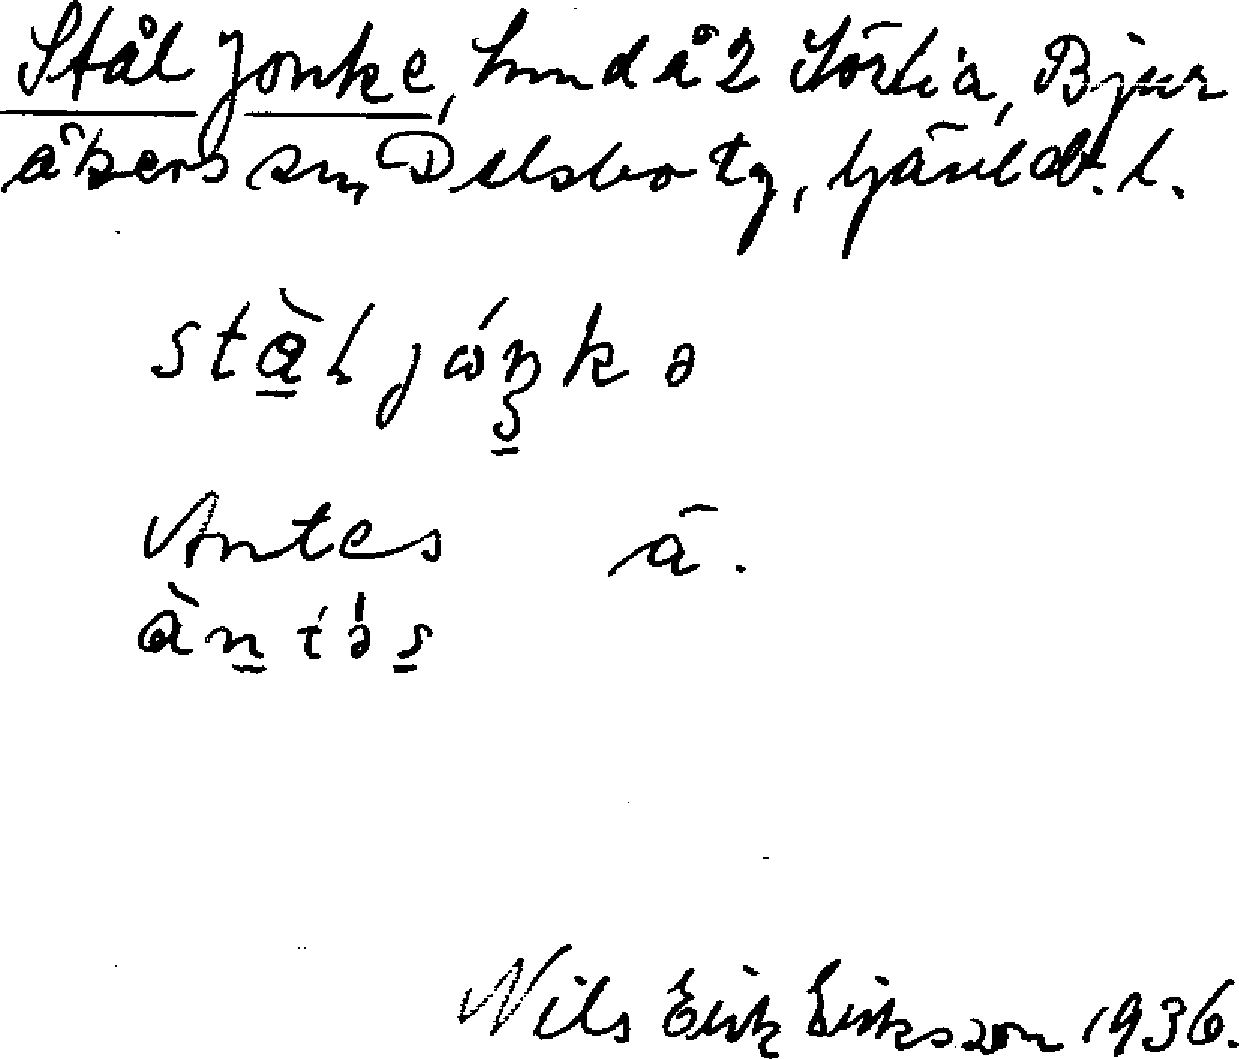 Stål Jonke, hmd å 2 Sörlia, Bjur
åkers sn, Delsbo tg, Gävleb. l.
stàl jóŋkə
Antes ä.
àntə́s
Nils Erik Eriksson 1936.